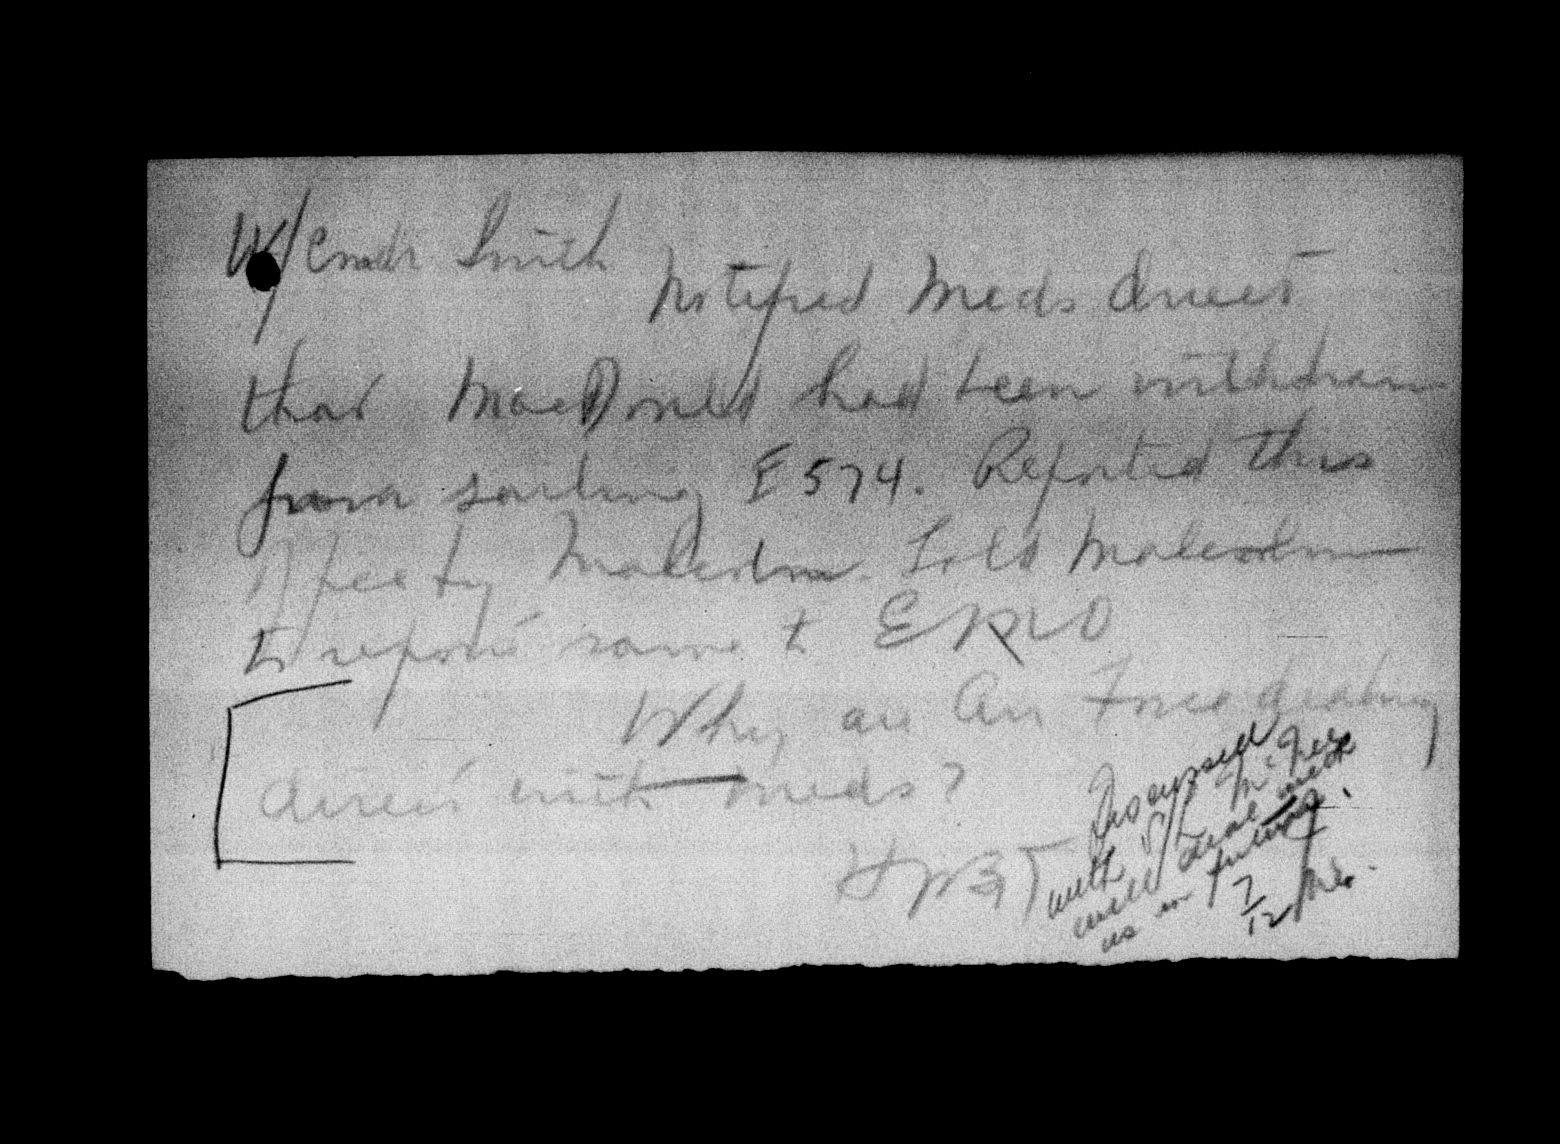 W/Cmdr Smith
Notified Meds direct
that MacDonald had been withdrawn
from sailing E574. Reported this
Malcolm. Told Malcolm
to report same to
Why are Air Force dealing
direct with Meds?
Discussed
with S/L McGee
will deal with
us in future.
7/12